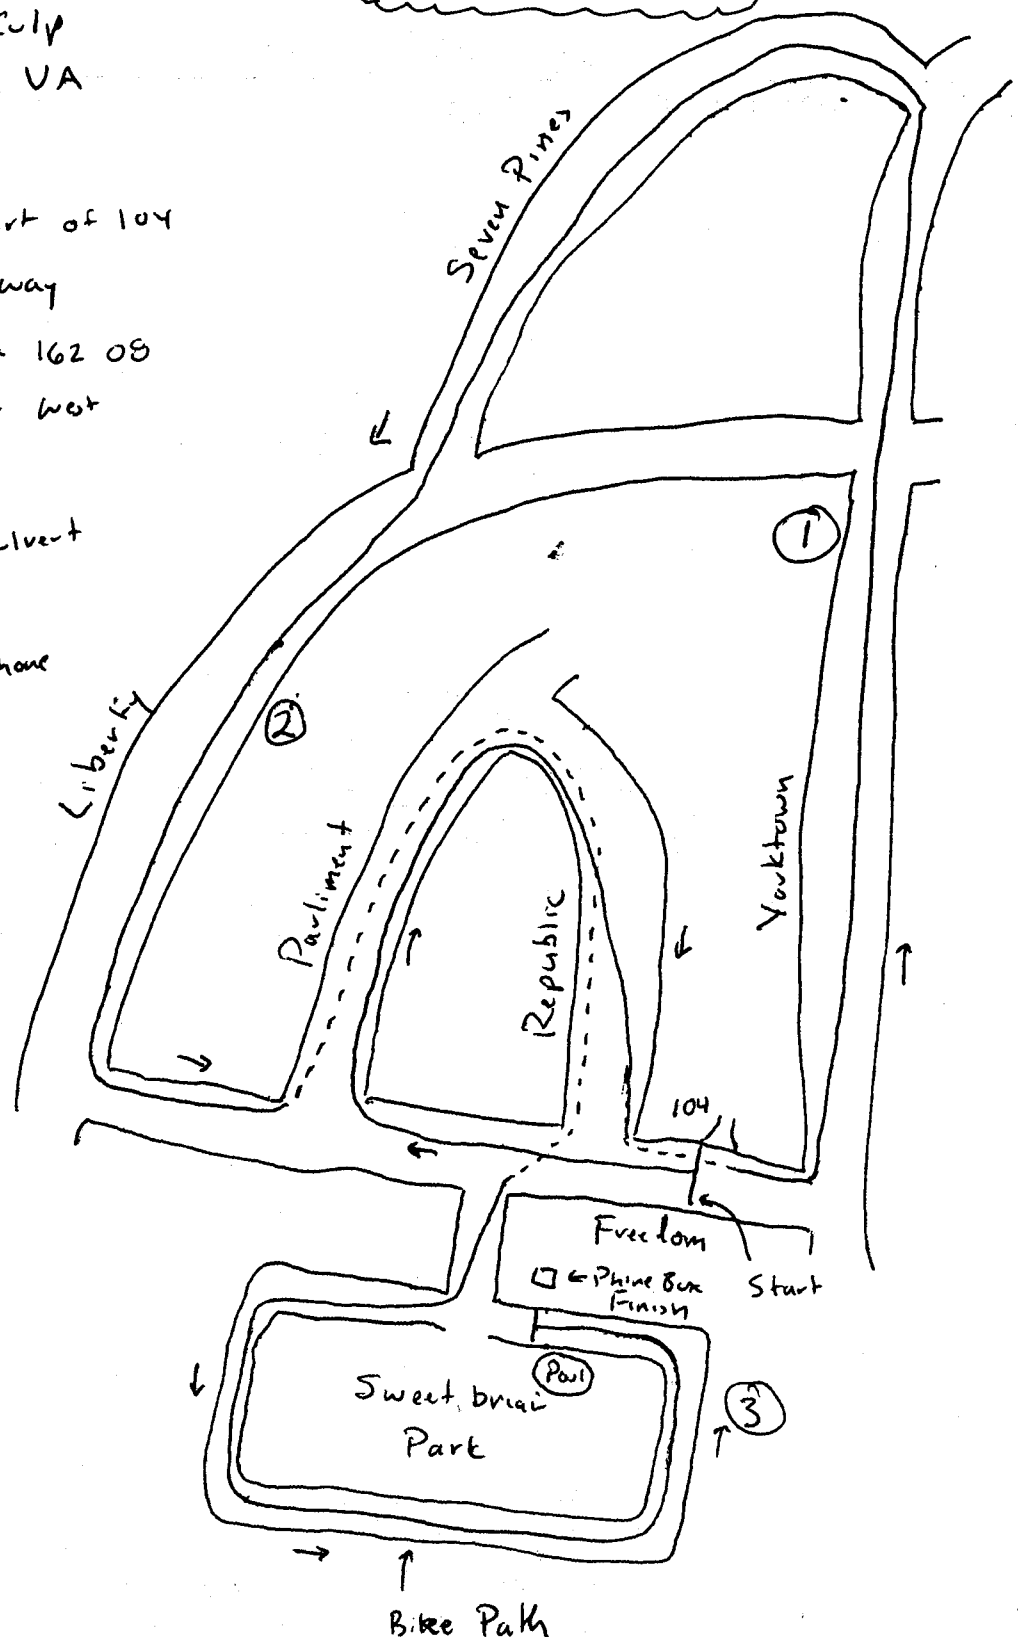 Culp
VA
rt of 104
way
162 08
West
lvert
hone
Seven Pines
1
2
Liberty
Parliment
Republic
Yorktown
104
Freedom
Start
← Phone Box
Finish
Pool
Sweet briar
Park
3
Bike Path